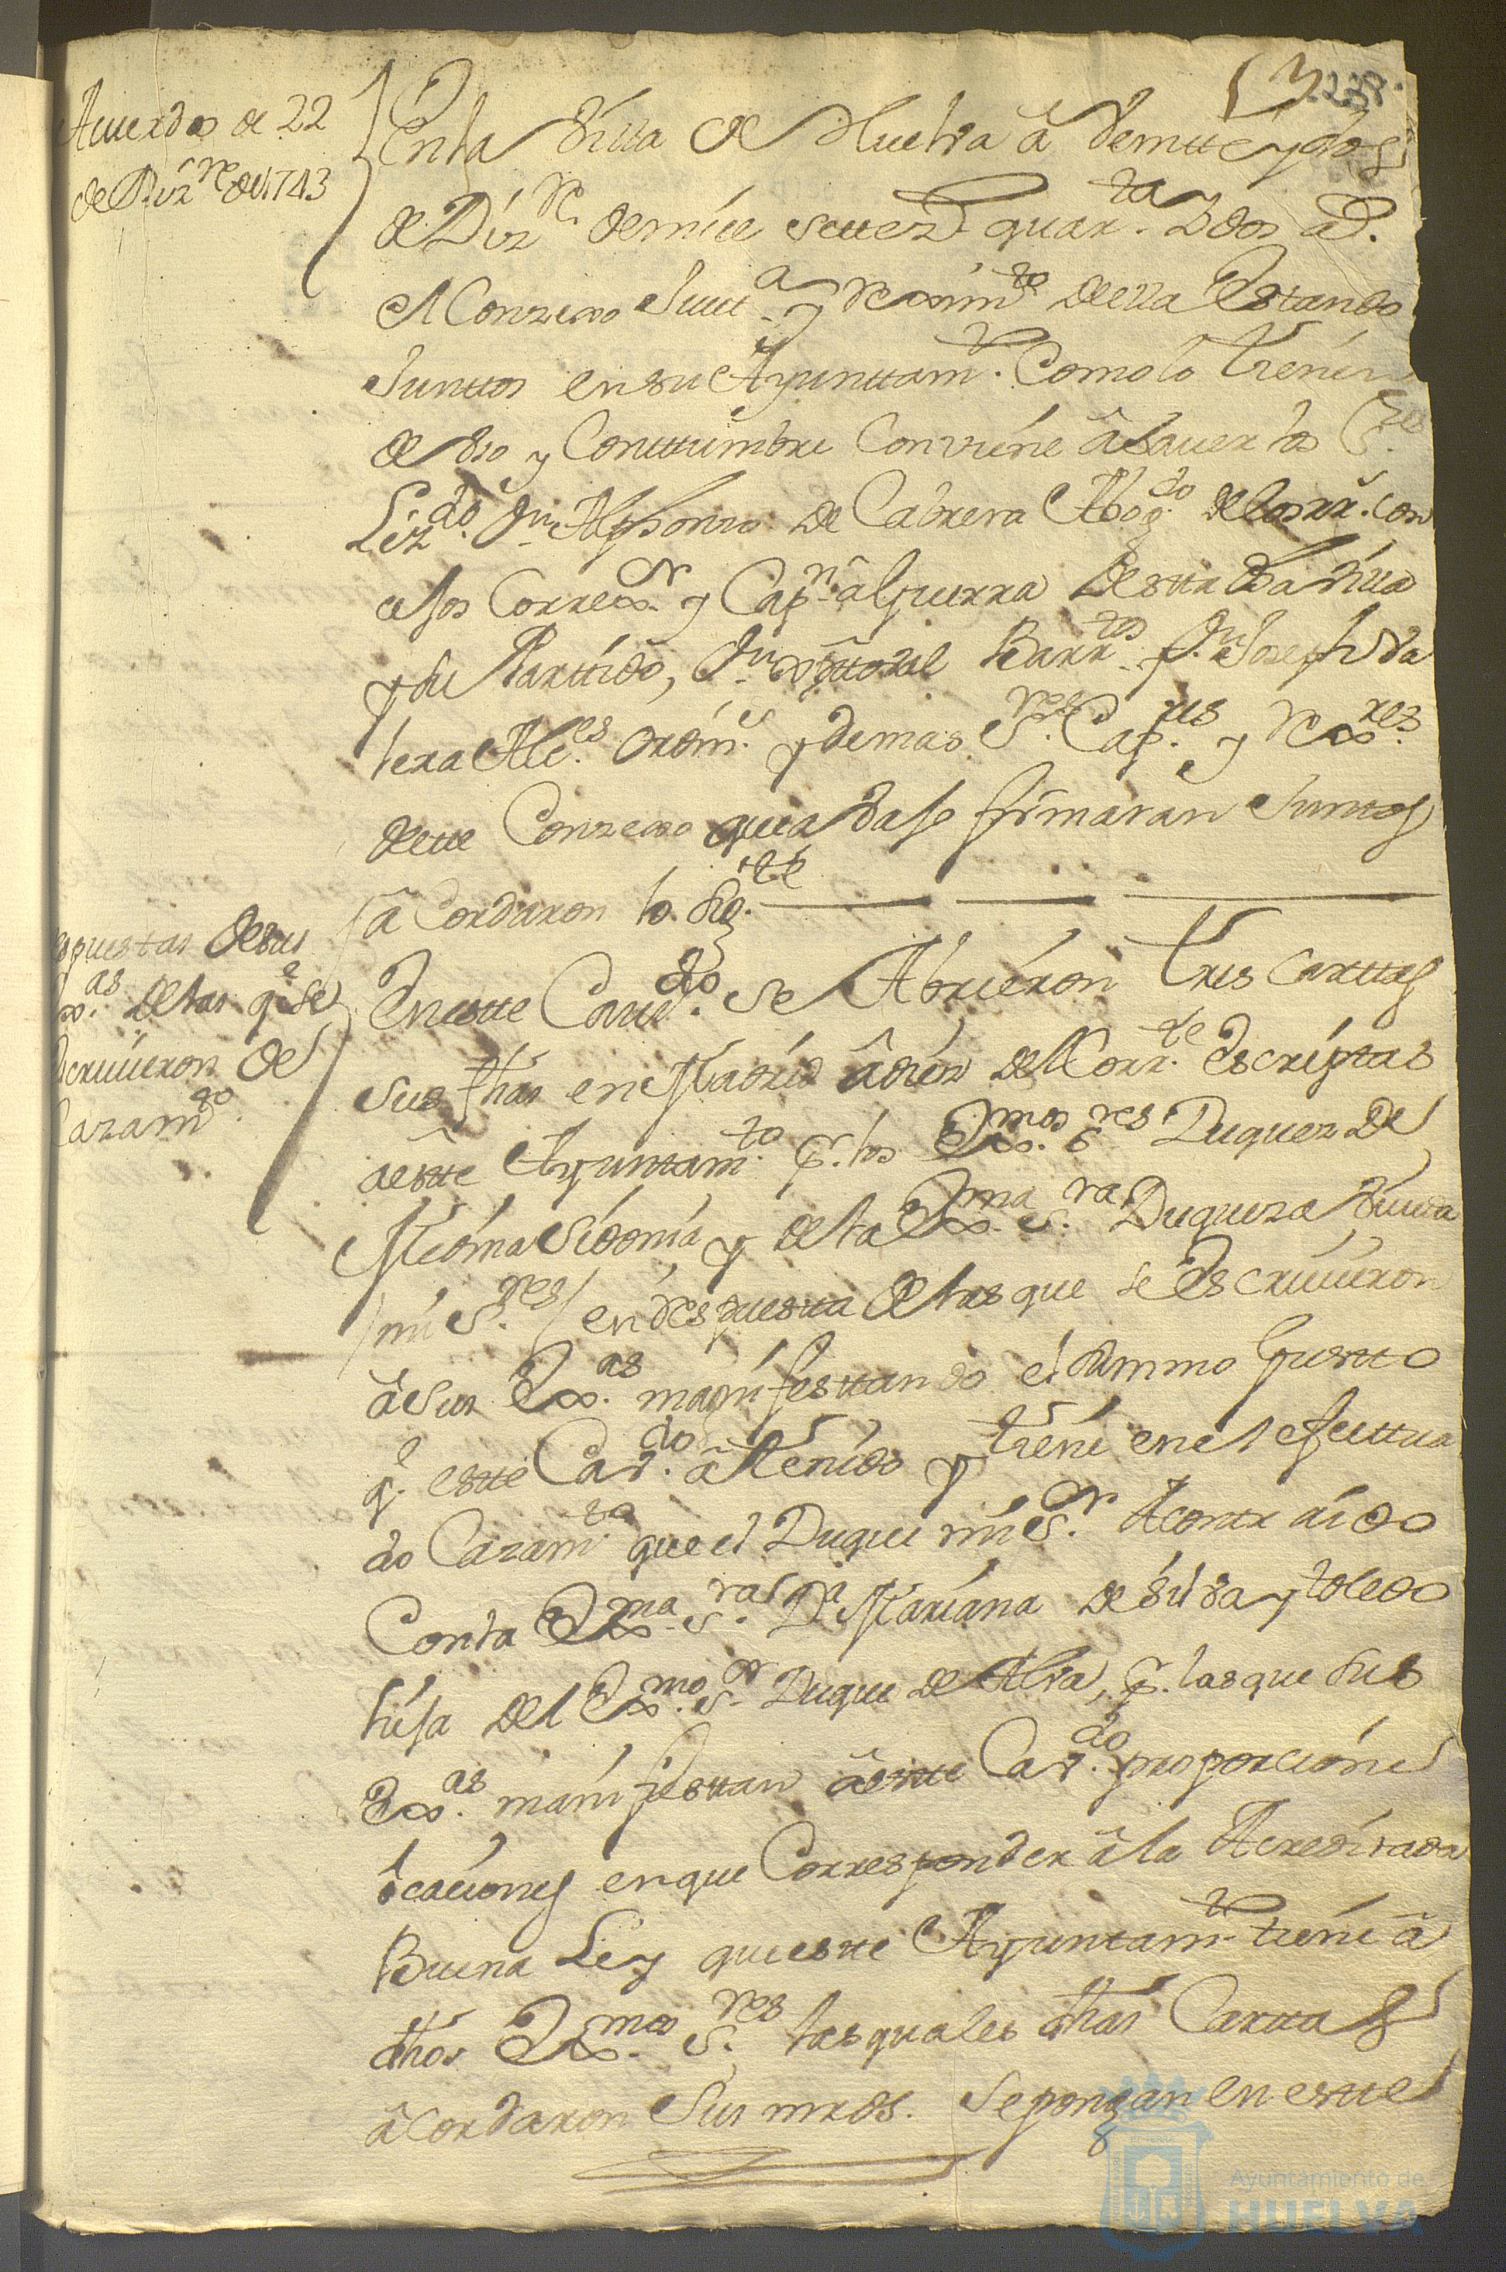 238
Acuerdo de 22
de Diz.re de 1743
Enla Villa de Huelva â Veintte y dos
de Diz.re de mill settez.s quar.ta y dos a.s
el Conzexo Justt.a y reximi.to de ella estando
Junttos en su Ayunttam.to Como lo tienen
de Vso y Consttumbre Conviene âsaver los S.res
Liz.do D.n Alphonso de Cabrera Abog.do de los rr.s con
sejos Correx.or y Cap.n âGuerra de esta dha Villa
y su Parttido, D.n Xptoval Barr.tos y D.n Joseph da
bera Alc.es ordin.s y demas S.res Cap.res y Rex.res
deste Conzexo que a Vajo firmaran Junttos
â Cordaron lo sig.te
espuestas de sus
ex.as de las q.e se
escrivieron de
Cazam.to
En estte Cavd.do se Abrieron tres carttas
sus fhas en Madrid âdiez del Corr.te escriptas
a estte Ayuntam.to p.r los Ex.mos S.res Duques de
Medina Sidonia, y de la Ex.ma S.ra Duquesa Viuda
/mis S.res/ en respuestta de las que se escrivieron
â Sus Ex.as manifesttando el summo Gustto
q.e estte Cav.do â tenido y tiene en el efecttua
do Cazam.to que el Duque mi S.or A contraido
Con la Ex.ma S.ra D.a Mariana de Silva y toledo
hija del Ex.mo S.or Duque de Alva, p.r las que sus
Ex.as manifiesttan â estte Cav.do proporcione
ôcaciones en que Corresponder â la Acreditada
Buena Ley que estte Ayuntam.to tiene â
dhos Ex.mos S.res las quales dhas Carttas
âcordaron Sus mrds. se pongan en estte
Ayuntamiento de
HUELVA